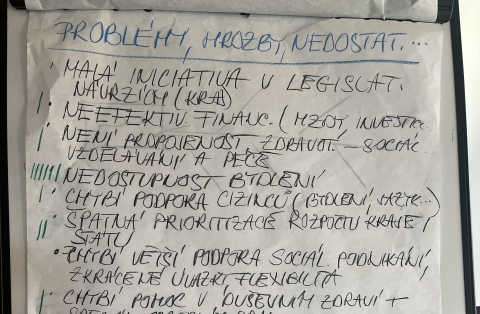 PROBLÉMY, HROZBY, NEDOSTAT...
MALÁ INICIATIVA V LEGISLAT.
NÁVRZÍCH (KRAJ)
NEEFEKTIV. FINANC. (MZDY, INVESTIC
NENÍ PROPOJENOST, ZDRAVOT. – SOCIÁL.
VZDĚLÁVÁNÍ A PÉČE
NEDOSTUPNOST BYDLENÍ
CHYBÍ PODPORA CIZINCŮ (BYDLENÍ, JAZYK...)
ŠPATNÁ PRIORITIZACE ROZPOČTU KRAJE,
STÁTU
CHYBÍ VĚTŠÍ PODPORA SOCIÁL. PODNIKÁNÍ,
ZKRÁCENÉ ÚVAZKY, FLEXIBILITA
CHYBÍ POMOC V DUŠEVNÍM ZDRAVÍ +